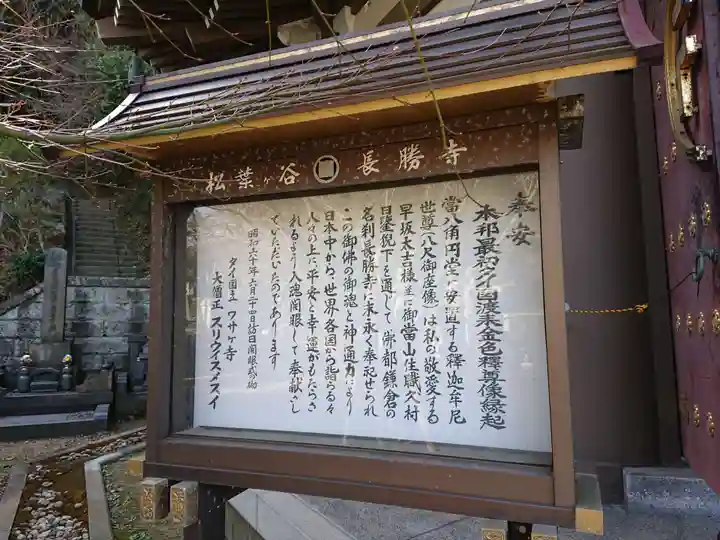 松葉ヶ谷 長勝寺
奉安
本邦最初タイ国渡来金色釋尊像縁起
當八角円堂に安置する釋迦牟尼
世尊八尺御座像は私の敬愛する
早坂太吉様並に御當山住職久村
日鑒猊下を通じて佛都鎌倉の
名刹長勝寺に末永く奉祀せられ
この御佛の御徳と神通力により
日本中から、世界各国から詣らる々
人々の上に平安と幸運がもたらさ
れるよう入魂開眼して奉献さし
ていただいたのであります
昭和六十年六月二十四日開眼式の砌
タイ国王 ワサケ寺
大僧正 スリウイスメスイ